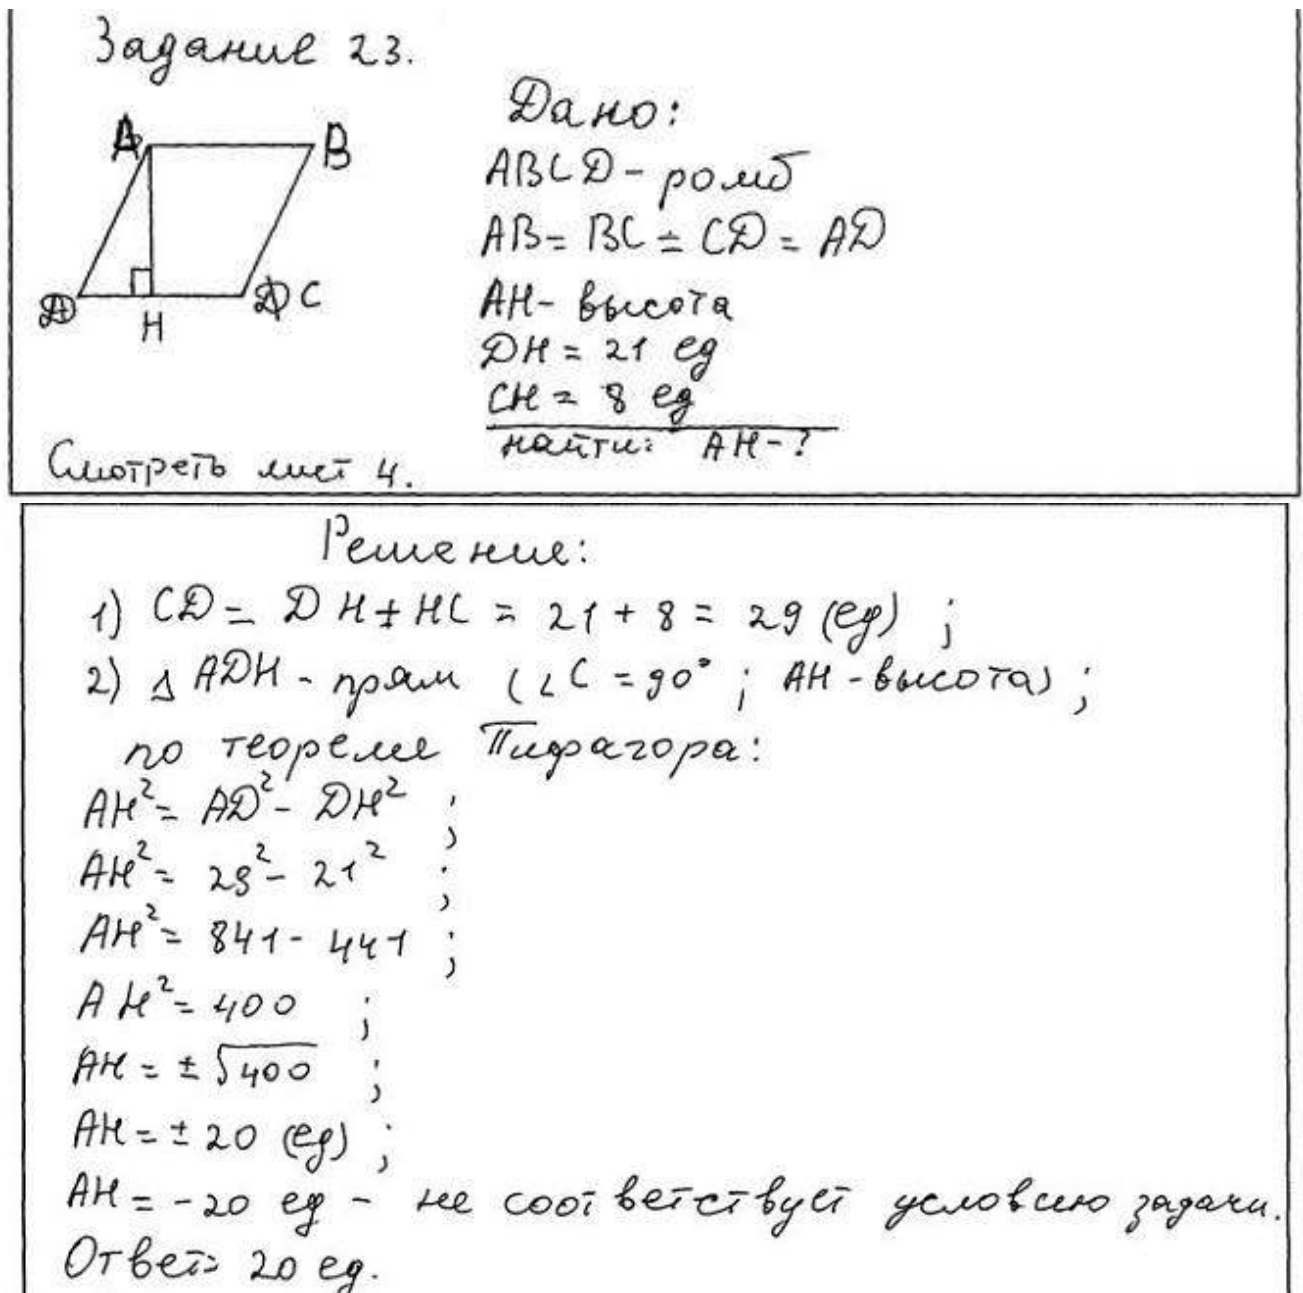 Задание 23.
A B
D H C
Дано:
ABCD - ромб
AB = BC = CD = AD
AH - высота
DH = 21 ед
CH = 8 ед
найти: AH - ?
Смотреть лист 4.
Решение:
1) CD = DH + HC = 21 + 8 = 29 (ед) ;
2) △ ADH - прям (∠C = 90° ; AH - высота) ;
по теореме Пифагора:
AH² = AD² - DH² ;
AH² = 29² - 21² ;
AH² = 841 - 441 ;
AH² = 400 ;
AH = ± √400 ;
AH = ± 20 (ед) ;
AH = - 20 ед - не соответствует условию задачи.
Ответ: 20 ед.